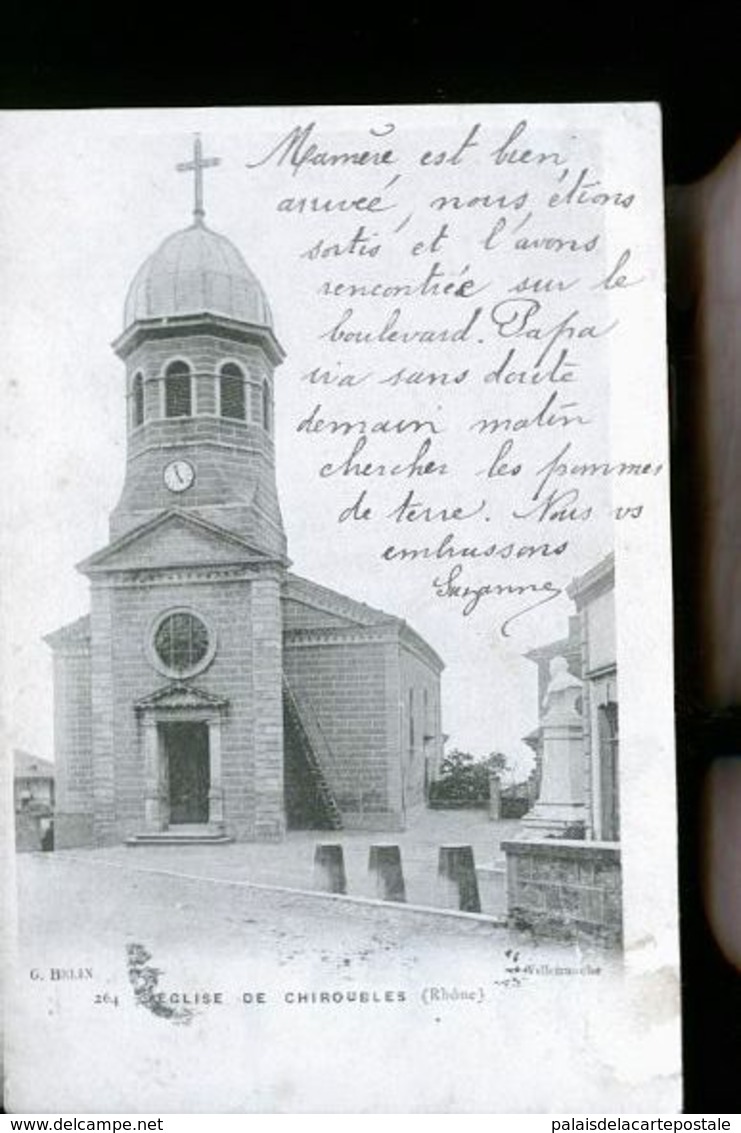 Mamère est bien
arrivée, nous étions
sortis et l'avons
rencontrée sur le
boulevard. Papa
ira sans doute
demain matin
chercher les pommes
de terre. Nous vs
embrassons
Suzanne
G. BELIN
Villefranche
264 ÉGLISE DE CHIROUBLES (Rhône)
www.delcampe.net
palaisdelacartepostale